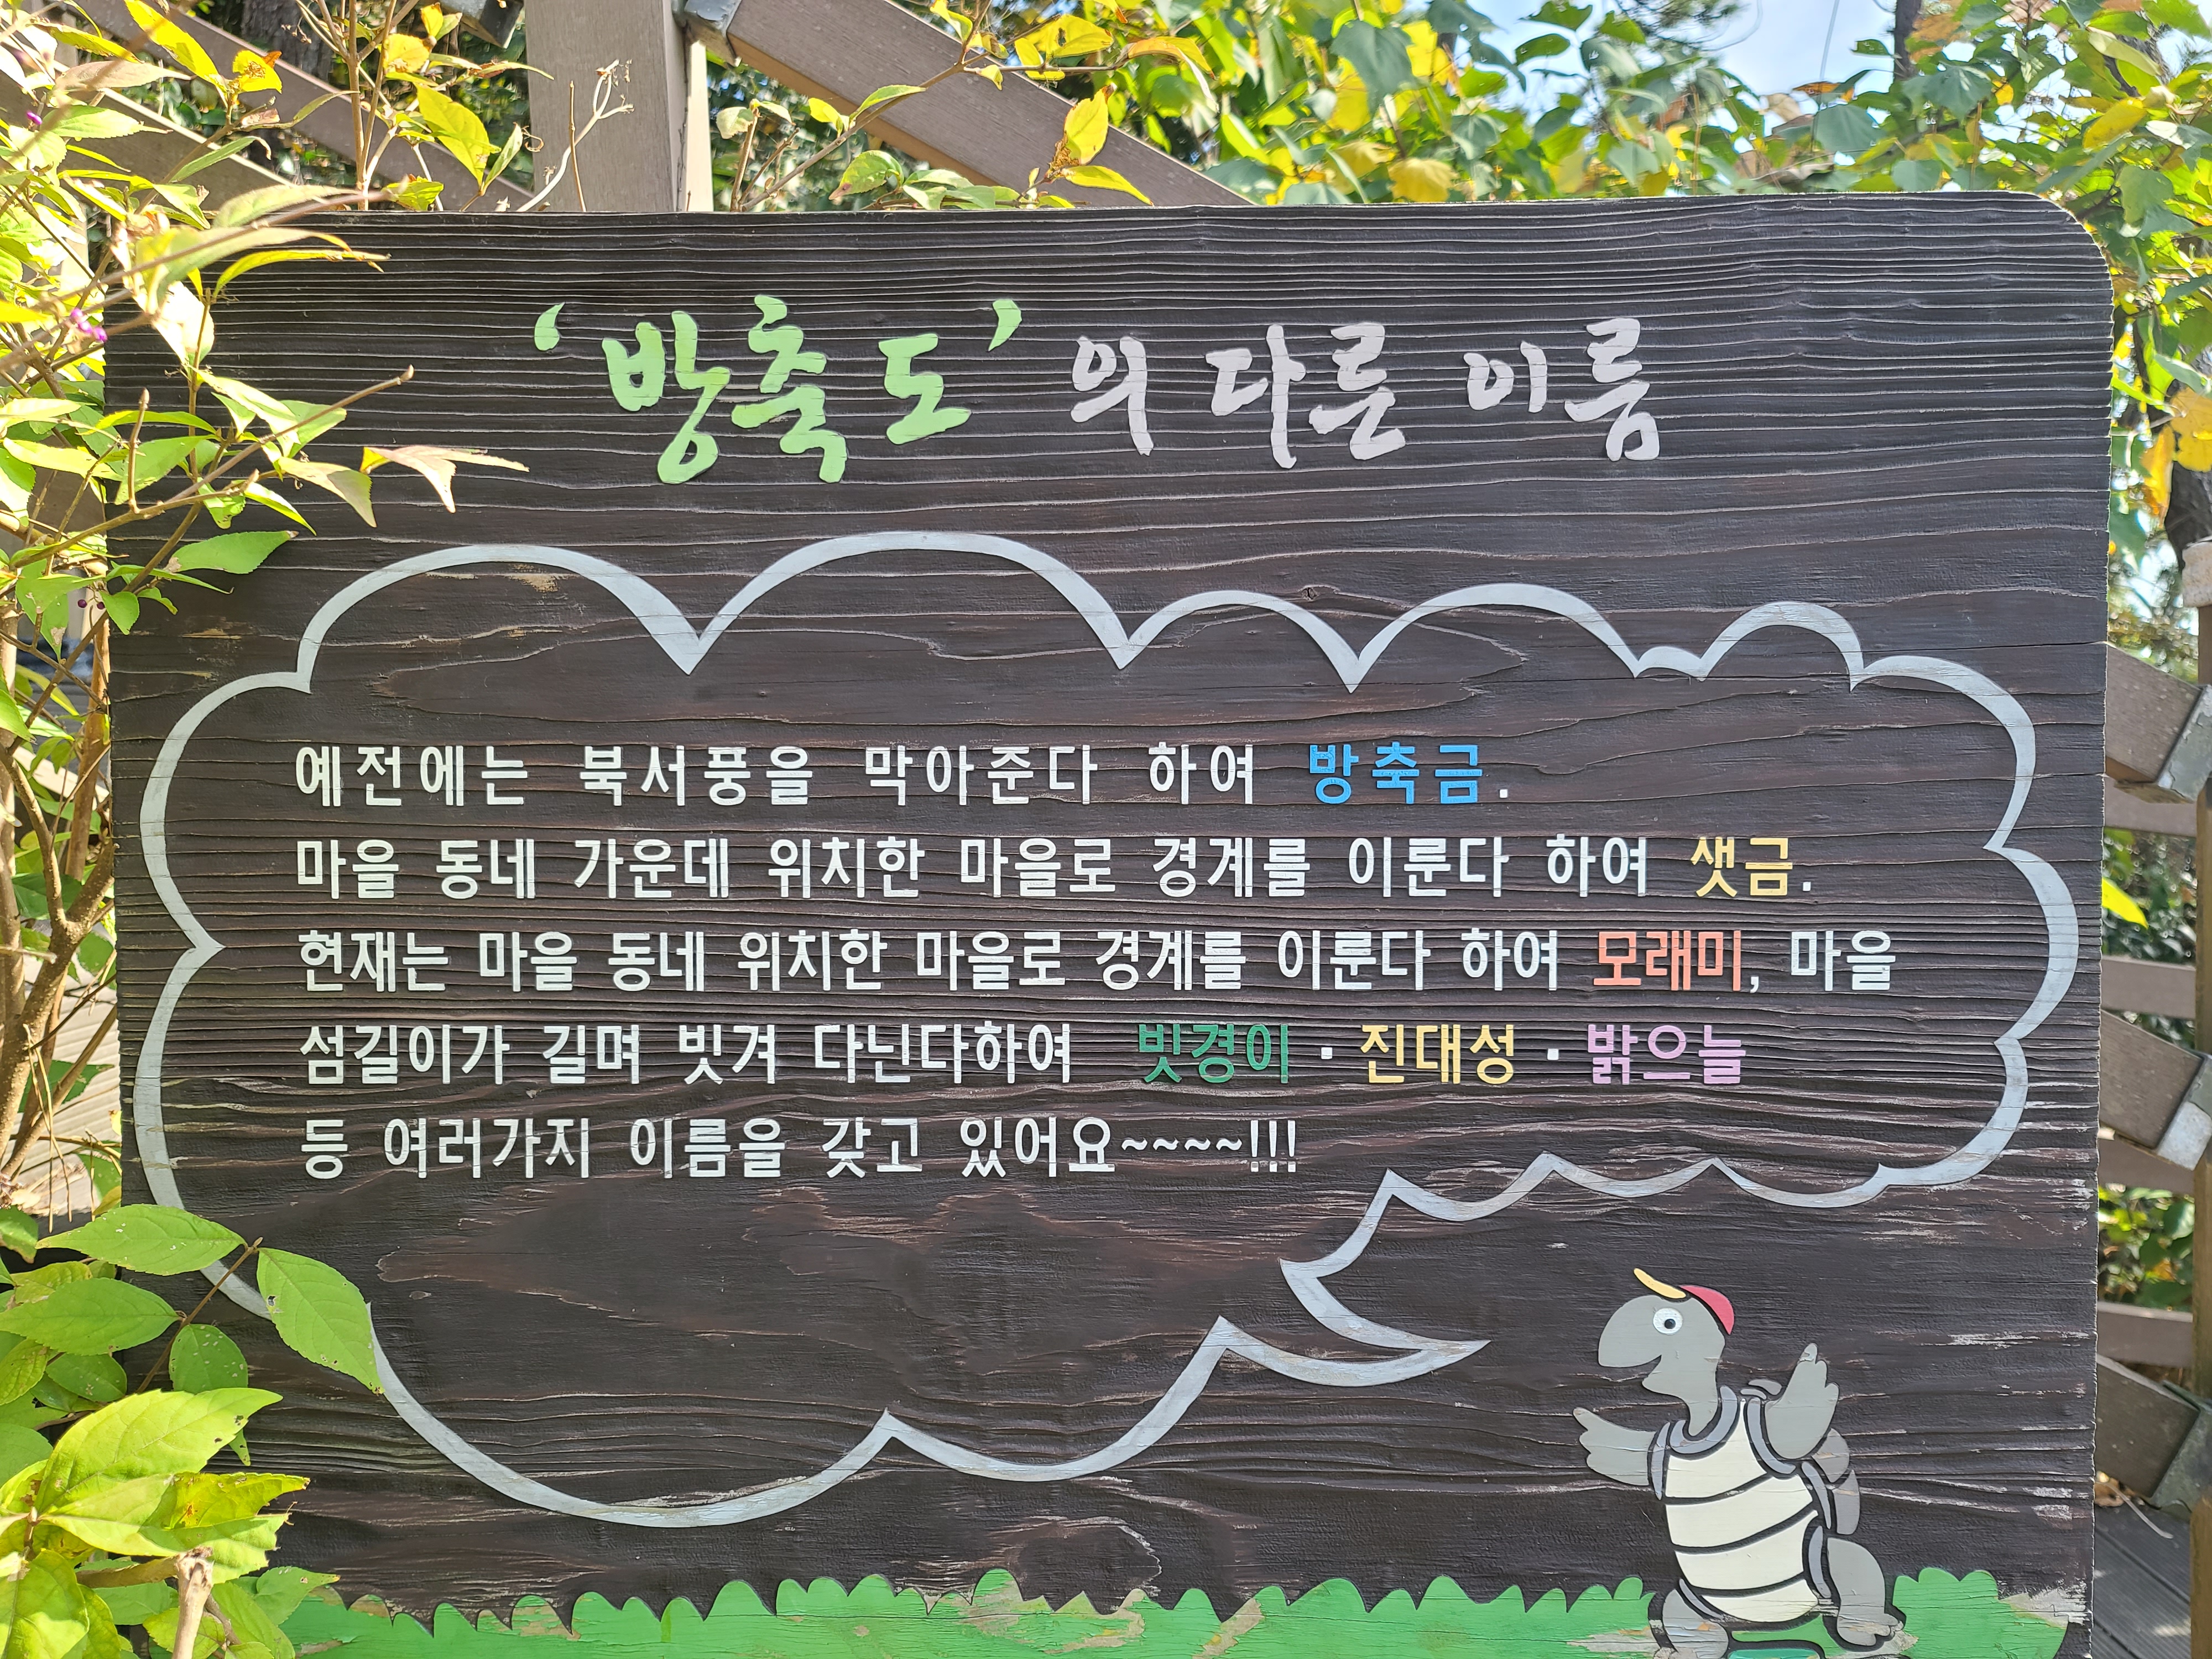 ‘방축도’의 다른 이름
예전에는 북서풍을 막아준다 하여 방축금.
마을 동네 가운데 위치한 마을로 경계를 이룬다 하여 샛금.
현재는 마을 동네 위치한 마을로 경계를 이룬다 하여 모래미, 마을
섬길이가 길며 빗겨 다닌다하여 빗경이·진대성·밝으늘
등 여러가지 이름을 갖고 있어요~~~~!!!